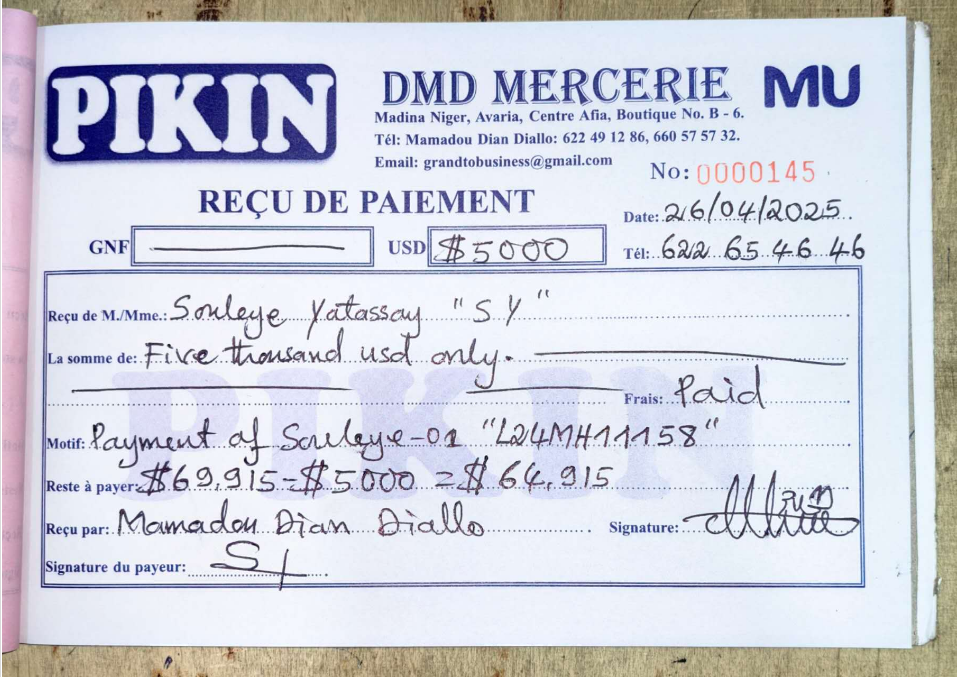 PIKIN
DMD MERCERIE MU
Madina Niger, Avaria, Centre Afia, Boutique No. B - 6.
Tél: Mamadou Dian Diallo: 622 49 12 86, 660 57 57 32.
Email: grandtobusiness@gmail.com
No: 0000145
REÇU DE PAIEMENT
Date: 26/04/2025
GNF USD $5000 Tél: 622 65 46 46
Reçu de M./Mme.: Souleye Yatassay "SY"
La somme de: Five thousand usd only.
Frais: Paid
Motif: Payment of Souleye-01 "L24MH11158"
Reste à payer: $69,915-$5000 = $64,915
Reçu par: Mamadou Dian Diallo Signature:
Signature du payeur: SY
PIKIN